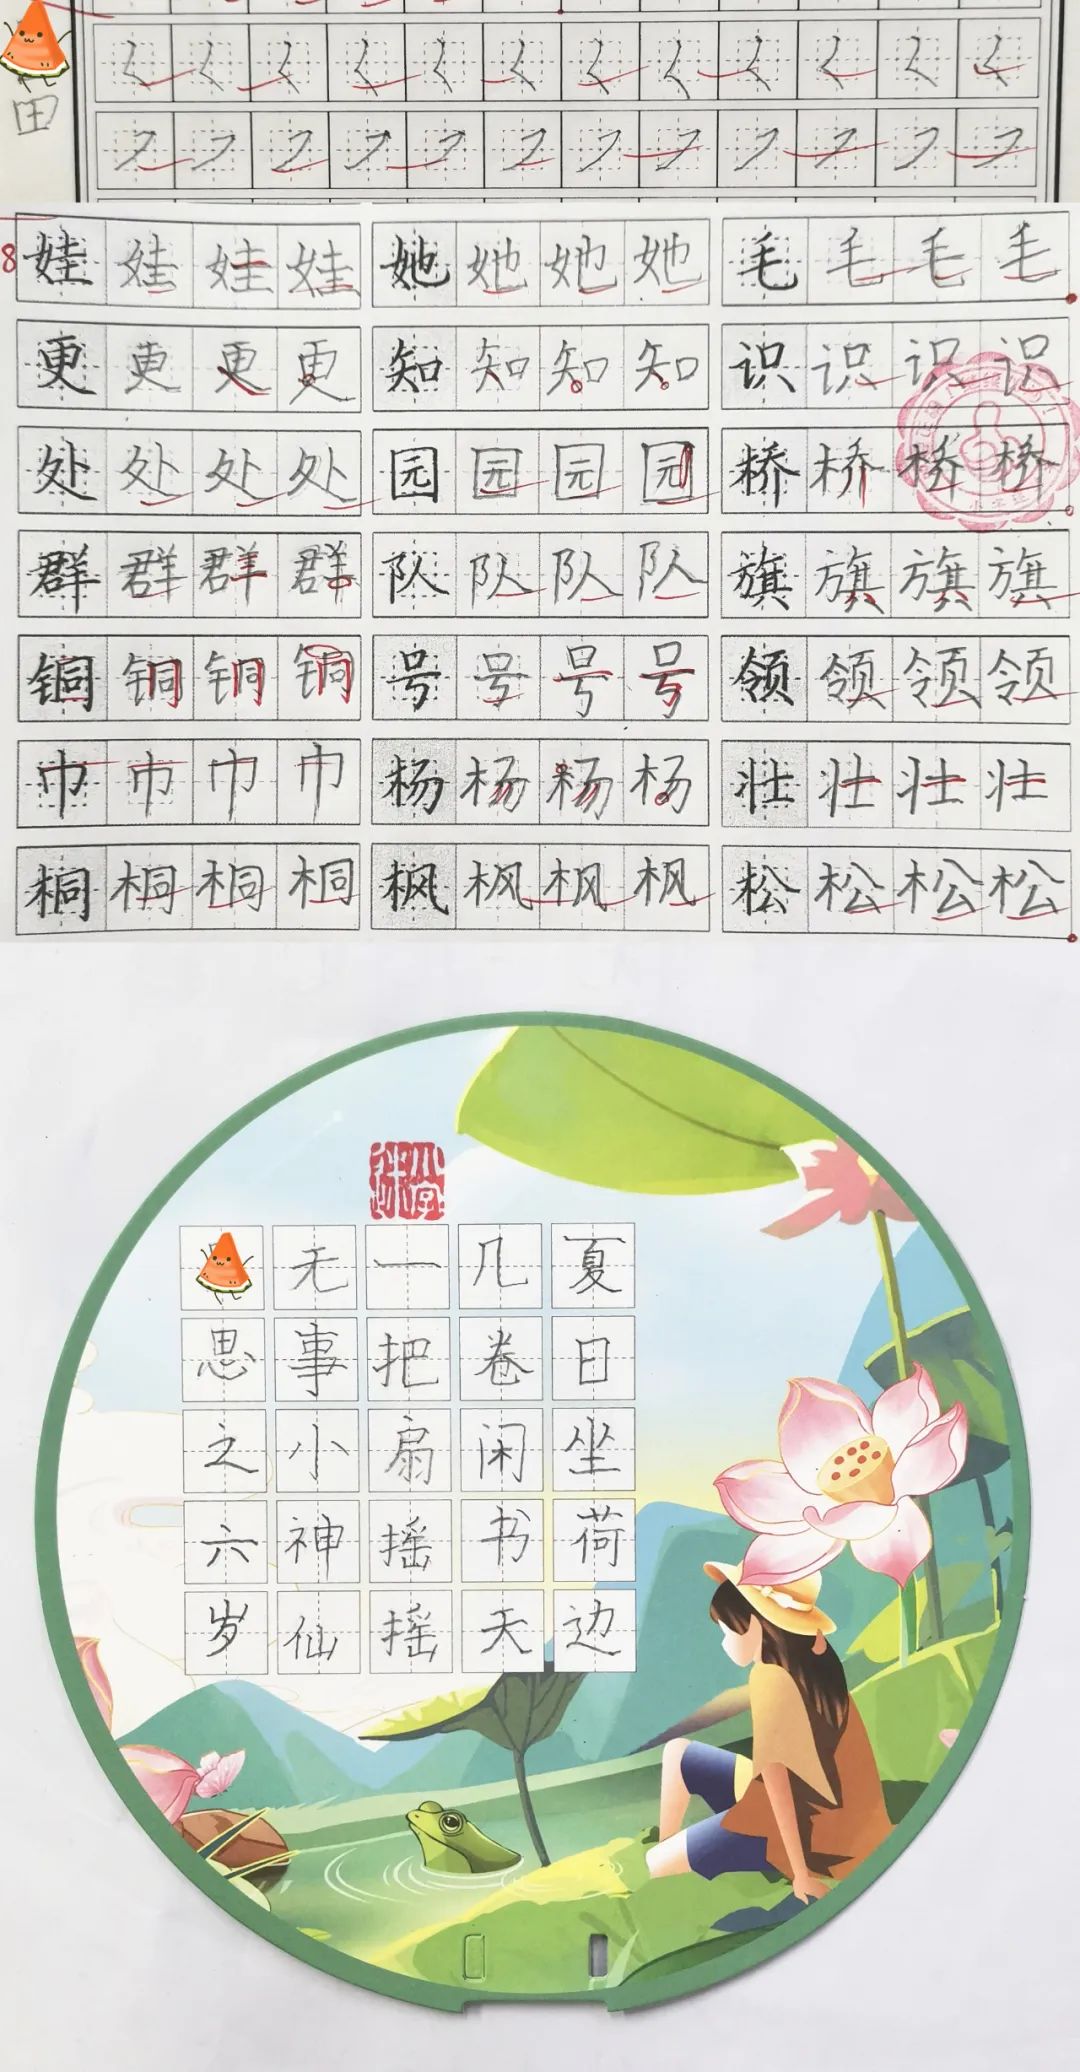 田
8
娃 娃 娃 娃 她 她 她 她 毛 毛 毛 毛
更 更 更 更 知 知 知 知 识 识 识 识
处 处 处 处 园 园 园 园 桥 桥 桥 桥
群 群 群 群 队 队 队 队 旗 旗 旗 旗
铜 铜 铜 铜 号 号 号 号 领 领 领 领
巾 巾 巾 巾 杨 杨 杨 杨 壮 壮 壮 壮
桐 桐 桐 桐 枫 枫 枫 枫 松 松 松 松
夏日坐荷边
几卷闲书天
一把扇摇摇
无事小神仙
思之六岁